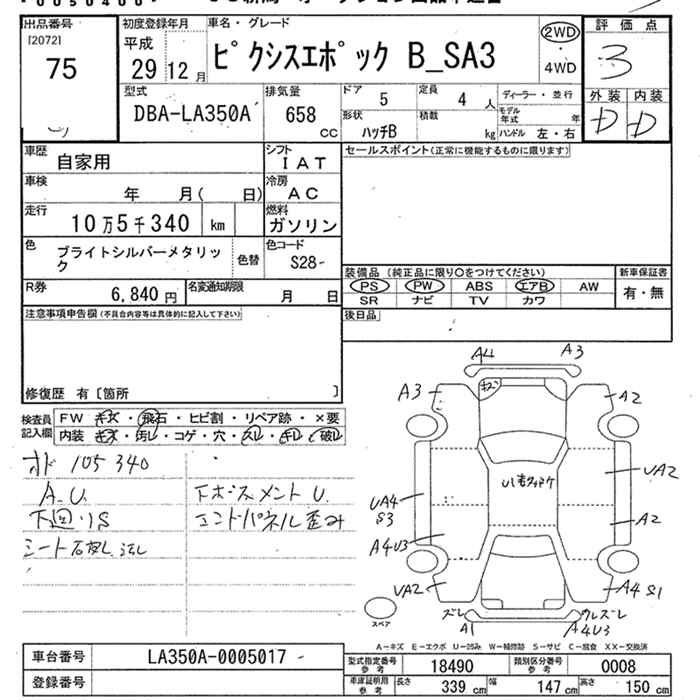 出品番号
[2072]
75
初度登録年月
平成
29年12月
車名・グレード
ピクシスエポック B_SA3
2WD
4WD
評価点
3
外装 内装
D D
型式
DBA-LA350A
排気量
658 cc
ドア 5
定員 4 人
ディーラー・並行
形状 ハッチB
積載 kg
モデル年式 年
ハンドル 左・右
車歴 自家用
シフト IAT
セールスポイント(正常に機能するものに限ります)
車検 年 月( 日)
冷房 AC
走行 10万5千340 km
燃料 ガソリン
色 ブライトシルバーメタリック
色替
色コード S28-
R券 6,840円
名変通知期限 月 日
装備品 (純正品に限り○をつけてください)
PS PW ABS エアB AW
SR ナビ TV カワ
新車保証書
有・無
注意事項申告欄(不具合内容等は具体的に記入して下さい)
後日品
修復歴 有〔箇所 〕
検査員記入欄
FW キズ・飛石・ヒビ割・リペア跡・×要
内装 キズ・汚レ・コゲ・穴・スレ・キレ・破レ
オド 105340
A.U.
下回りS
下ボスメントU.
エンドパネル歪み
A4 A3
A3 キズ A2
UA2
UA4
S3
A2
A4U3
UA2
A4 S1
ズレ
A1
ウレズレ
A4U3
スペア
A-キズ E-エクボ U-凹み W-補修跡 S-サビ C-腐食 XX-交換済
車台番号 LA350A-0005017-
登録番号
型式指定番号参考 18490
類別区分番号参考 0008
車庫証明用参考 長さ 339 cm 幅 147 cm 高さ 150 cm